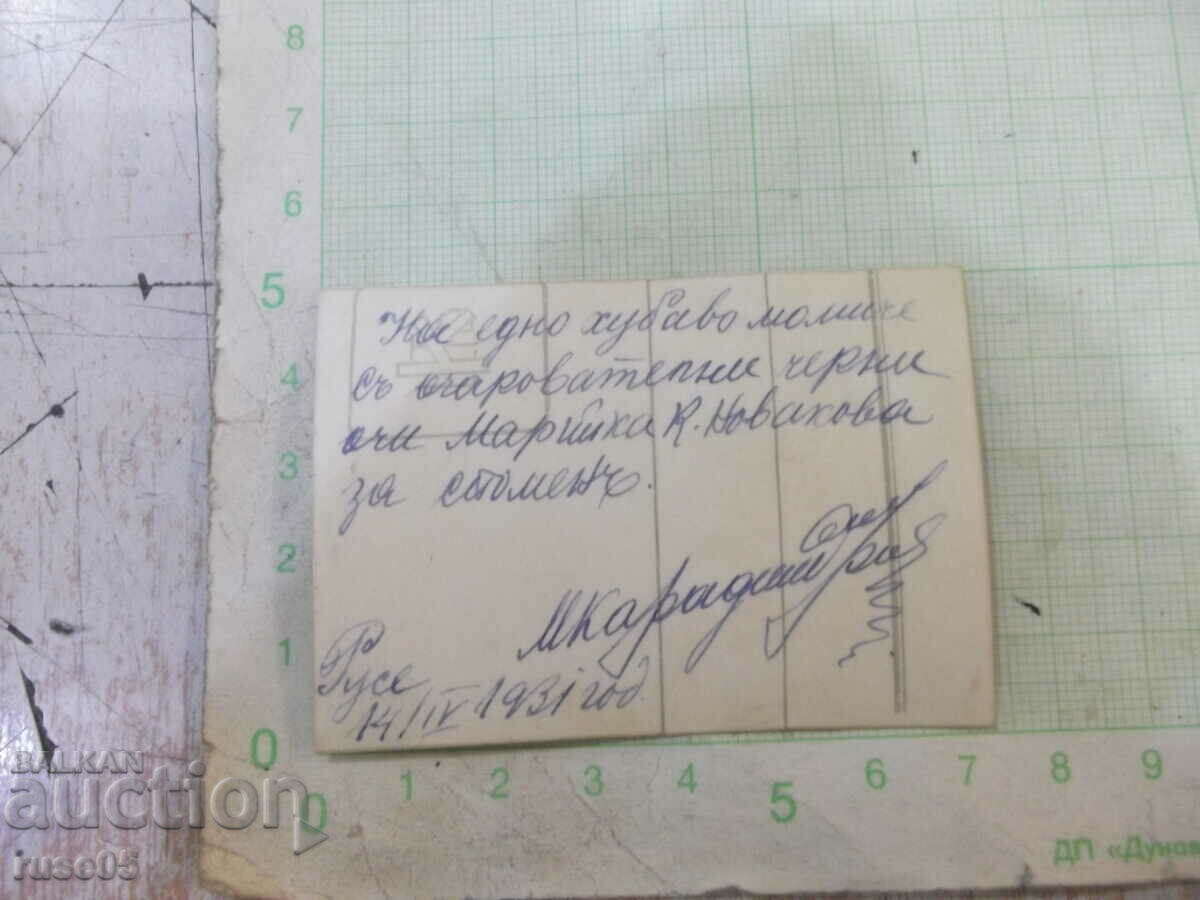 8
7
6
5
4
3
2
1
0
На едно хубаво момиче
съ очарователни черни
очи Марийка К. Новакова
за споменъ.
Русе
14/IV 1931 год.
0
1
2
3
4
5
6
7
8
9
ДП «Дунав
BALKAN
auction
ruse05